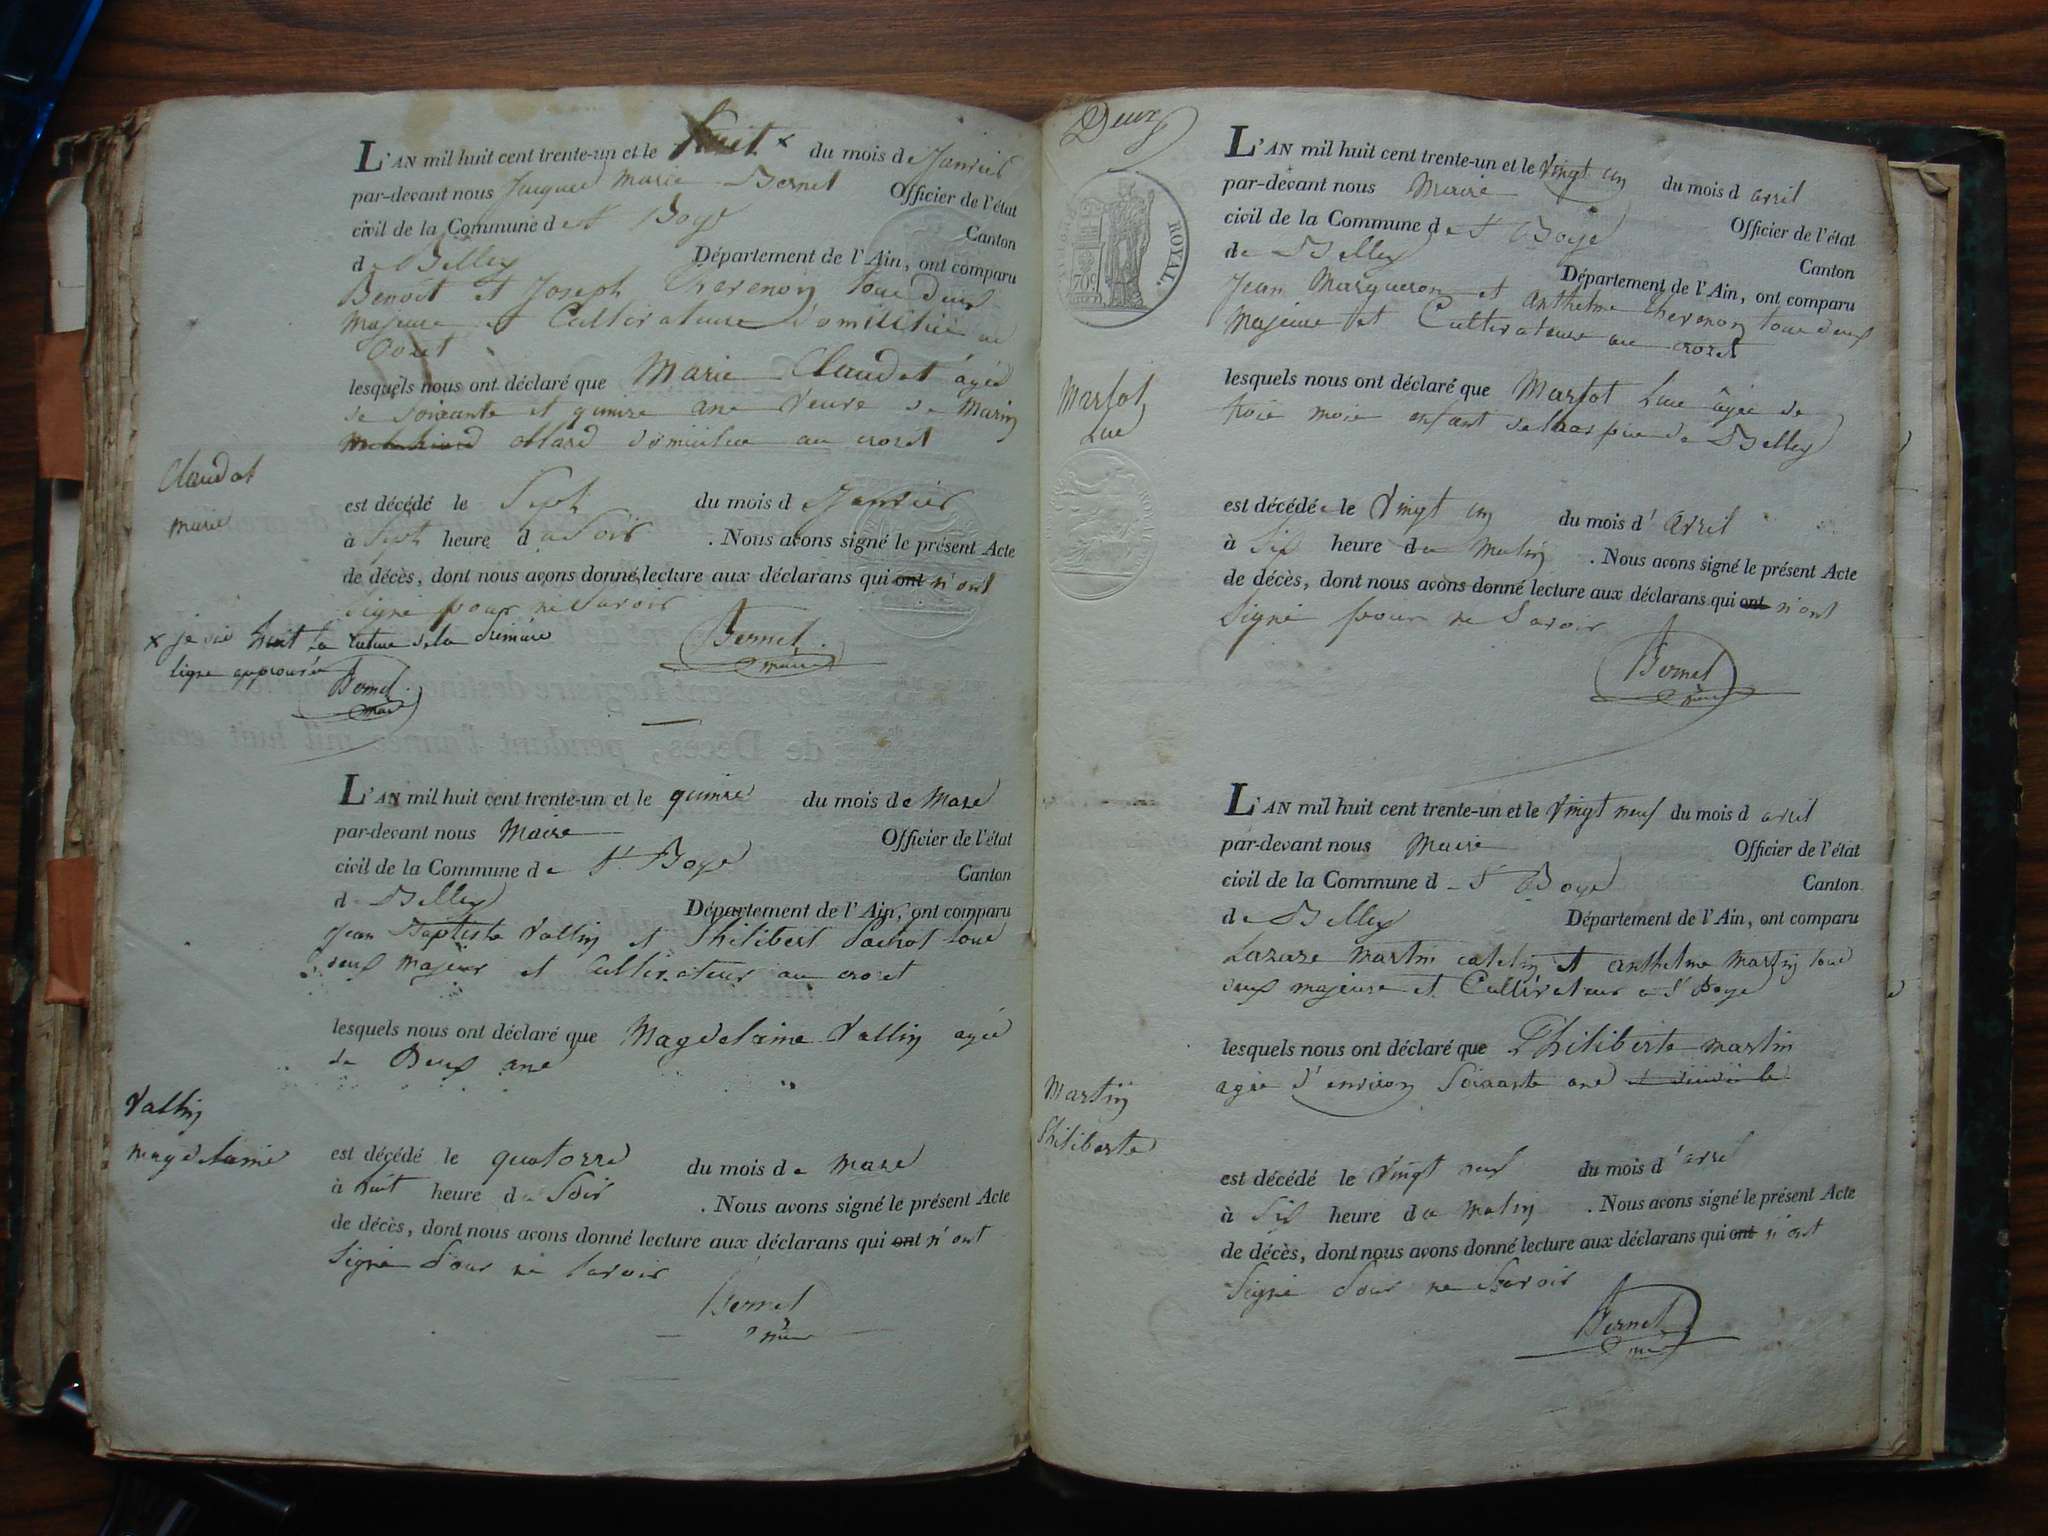 L'AN mil huit cent trente-un et le huit x du mois de Janvier
par-devant nous Jacques Marie Bernet Officier de l'état
civil de la Commune de St Boys Canton
de Belley Département de l'Ain, ont comparu
Benoit et Joseph Thevenon tous deux
majeurs et Cultivateurs domiciliés au
Crozet
lesquels nous ont déclaré que Marie Claudat âgée
de soixante et quinze ans veuve de Marin
ollard domiciliée au crozet
Claudat
marie
est décédé le Sept du mois de Janvier
à Sept heure du Soir . Nous avons signé le présent Acte
de décès, dont nous avons donné lecture aux déclarans qui ont n'ont
signé pour ne Savoir
Bernet
maire
x je dis huit la rature de la première
ligne approuvée
Bernet
maire
L'AN mil huit cent trente-un et le quinze du mois de Mars
par-devant nous Maire Officier de l'état
civil de la Commune de St Boys Canton
de Belley Département de l'Ain, ont comparu
Jean Baptiste Vallin et Philibert Pachot tous
deux majeur et Cultivateur au crozet
lesquels nous ont déclaré que Magdelaine Vallin agée
de Deux ans
Vallin
magdelaine
est décédé le quatorze du mois de Mars
à huit heure du Soir . Nous avons signé le présent Acte
de décès, dont nous avons donné lecture aux déclarans qui ont n'ont
Signé Pour ne Savoir
Bernet
maire
Deux
ROYAL.
L'AN mil huit cent trente-un et le vingt un du mois d avril
par-devant nous Maire Officier de l'état
civil de la Commune de St Boys Canton
de Belley Département de l'Ain, ont comparu
Jean Margueron et Anthelme Thevenon tous deux
Majeurs et Cultivateurs au crozet
lesquels nous ont déclaré que Marfot Luc âgée de
trois mois enfant de de Belley
Marfot
Luc
est décédée le Vingt un du mois d' avril
à Six heure du Matin . Nous avons signé le présent Acte
de décès, dont nous avons donné lecture aux déclarans qui ont n'ont
Signé pour ne Savoir
Bernet
maire
L'AN mil huit cent trente-un et le Vingt neuf du mois d avril
par-devant nous Maire Officier de l'état
civil de la Commune d St Boys Canton
de Belley Département de l'Ain, ont comparu
Lazare Martin catelin et anthelme Martin tous
deux majeurs et Cultivateurs a St Boys
lesquels nous ont déclaré que Philiberte Martin
agée d'environ Soixante ans
Martin
Philiberte
est décédé le Vingt neuf du mois d'avril
à Six heure du Matin . Nous avons signé le présent Acte
de décès, dont nous avons donné lecture aux déclarans qui ont n'ont
Signé Pour ne Savoir
Bernet
maire